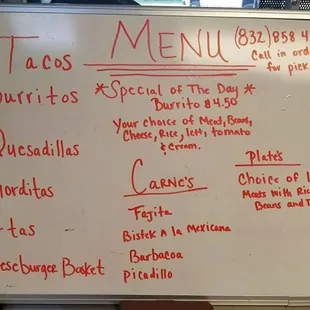 MENU
(832) 858 4
Call in ord
for pick
Tacos
urritos
Quesadillas
orditas
tas
eseburger Basket
*Special of The Day*
Burrito $4.50
Your choice of Meat, Beans,
Cheese, Rice, lett, tomato
& cream.
Carne's
Fajita
Bistek A la Mexicana
Barbacoa
Picadillo
Plate's
Choice of 1
Meats with Ric
Beans and